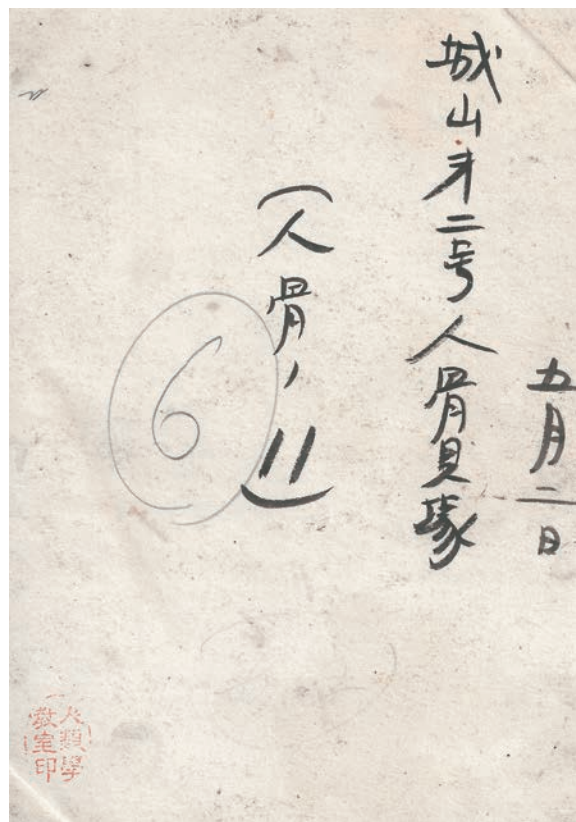 五月二日
城山才二号人骨貝塚
(人骨、11)
6
人類學
教室印